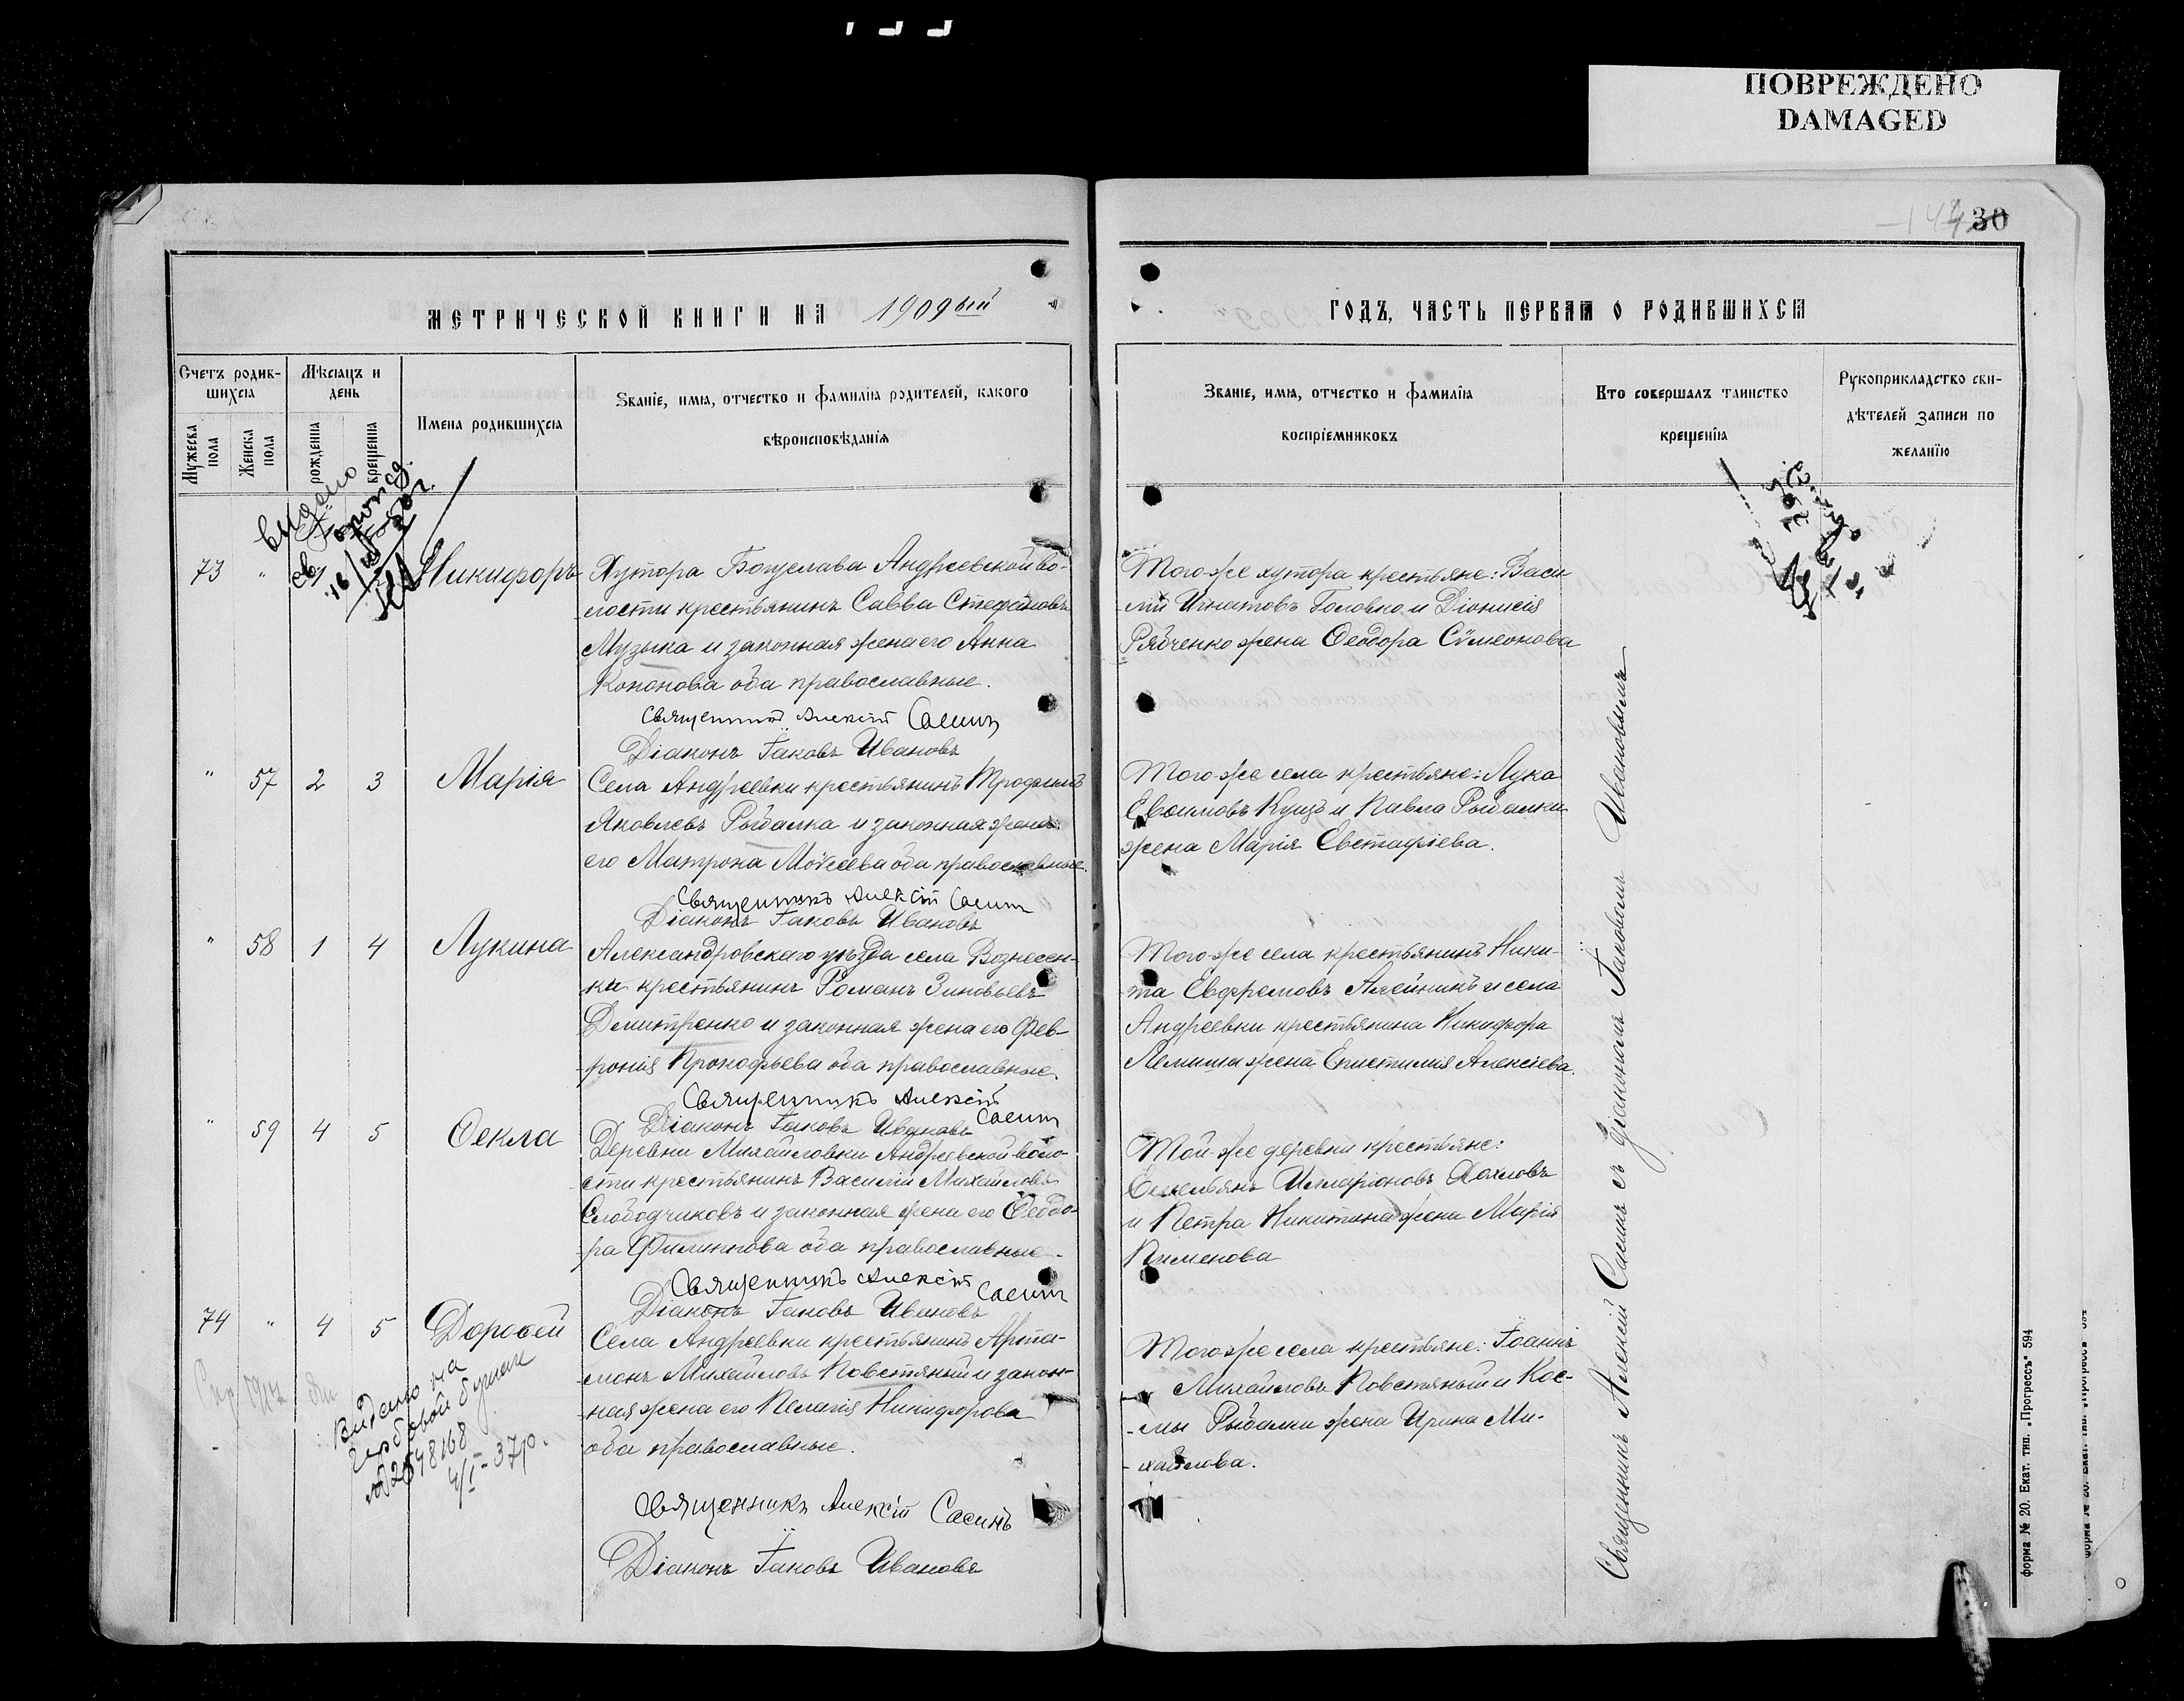 ПОВРЕЖДЕНО
DAMAGED
30
МЕТРИЧЕСКОЙ КНИГИ НА 1909ый
ГОДЪ, ЧАСТЬ ПЕРВАЯ О РОДИВШИХСЯ
Счетъ родив-
шихся
Мужеска
пола
Женска
пола
Мѣсяцъ и
день
рожденія
крещенія
Имена родившихся
Званіе, имя, отчество и фамилія родителей, какого
вѣроисповѣданія
Званіе, имя, отчество и фамилія
воспріемниковъ
Кто совершалъ таинство
крещенія
Рукоприкладство сви-
дѣтелей записи по
желанію
выдано
73 " Никифоръ
Хутора Богуслава Андреевской во-
лости крестьянинъ Савва Стефановъ
Музыка и законная жена его Анна
Кононова оба православные.
Священникъ Алексій Сасинъ
Діаконъ Іаковъ Ивановъ
Того-же хутора крестьяне: Васи-
лій Игнатовъ Головко и Діонисія
Рябченко жена Ѳеодора Сѵмеонова
" 57 2 3 Марія
Села Андреевки крестьянинъ Трофимъ
Яковлевъ Рыбалка и законная жена
его Матрона Моѵсеева оба православные.
Священникъ Алексій Сасинъ
Діаконъ Іаковъ Ивановъ
Того-же села крестьяне: Лука
Евѳимовъ Куцъ и Павла Рыбалки
жена Марія Евстафіева.
" 58 1 4 Лукина
Александровскаго уѣзда села Вознесен-
ки крестьянинъ Романъ Зиновьевъ
Дмитренко и законная жена его Фев-
ронія Прокофьева оба православные.
Священникъ Алексій
Сасинъ
Діаконъ Іаковъ Ивановъ
Того-же села крестьянинъ Ники-
та Евфремовъ Алейникъ и села
Андреевки крестьянина Никифора
Лемиша жена Епистимія Алексіева.
" 59 4 5 Ѳекла
Деревни Михайловки Андреевской воло-
сти крестьянинъ Василій Михайловъ
Слободчиковъ и законная жена его Ѳеодо-
ра Филиппова оба православные.
Священникъ Алексій
Сасинъ
Діаконъ Іаковъ Ивановъ
Той-же деревни крестьяне:
Емельянъ Илларіоновъ Хохловъ
и Петра Никитина жена Марія
Пименова
74 " 4 5 Дороѳей
Села Андреевки крестьянинъ Арта-
монъ Михайловъ Повстяный и закон-
ная жена его Пелагія Никифорова
оба православные.
Священникъ Алексій Сасинъ
Діаконъ Іаковъ Ивановъ
Того-же села крестьяне: Іоаннъ
Михайловъ Повстяный и Кос-
мы Рыбалки жена Ирина Ми-
хайлова.
Видано на
гербовой бумаге
4/I-37р.
Священникъ Алексій Сасинъ съ діакономъ Іаковомъ Ивановымъ
Форма № 20. Екат. тип. „Прогрессъ" 594